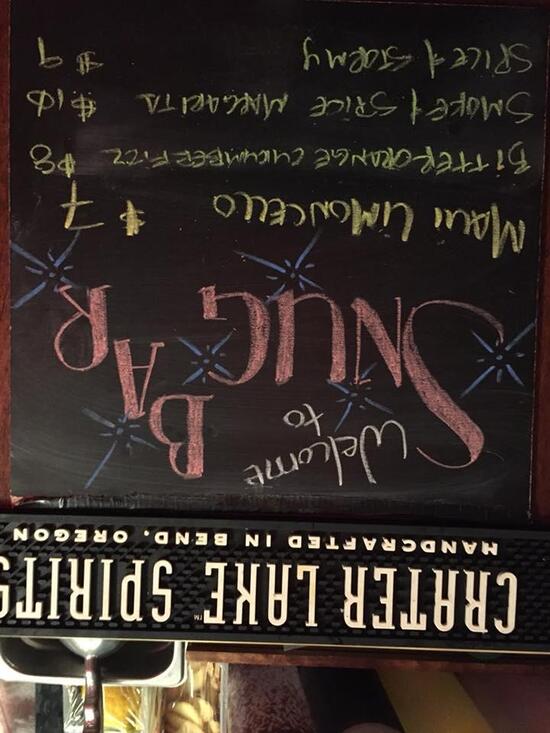 CRATER LAKE SPIRITS™
HANDCRAFTED IN BEND, OREGON
Welcome
to
SNUG
BAR
MAUI LIMONCELLO $7
BITTER ORANGE CUCUMBER FIZZ $8
SMOKE & SPICE MARGARITA $10
SPICE & STORMY $9